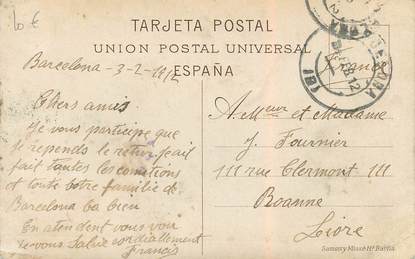 10 €
TARJETA POSTAL
UNION POSTAL UNIVERSAL
ESPAÑA
Barcelona - 3-2-1912
Chers amis
Je vous participe que
si reponds le retir pait
fait tautes les comitions
et toute votre familie de
Barcelona ba bien
En atendent vous voir
je vous Salue cordiallement
Francis
France
A Meur et Madame
J. Fournier
111 rue Clermont 111
Roanne
Loire